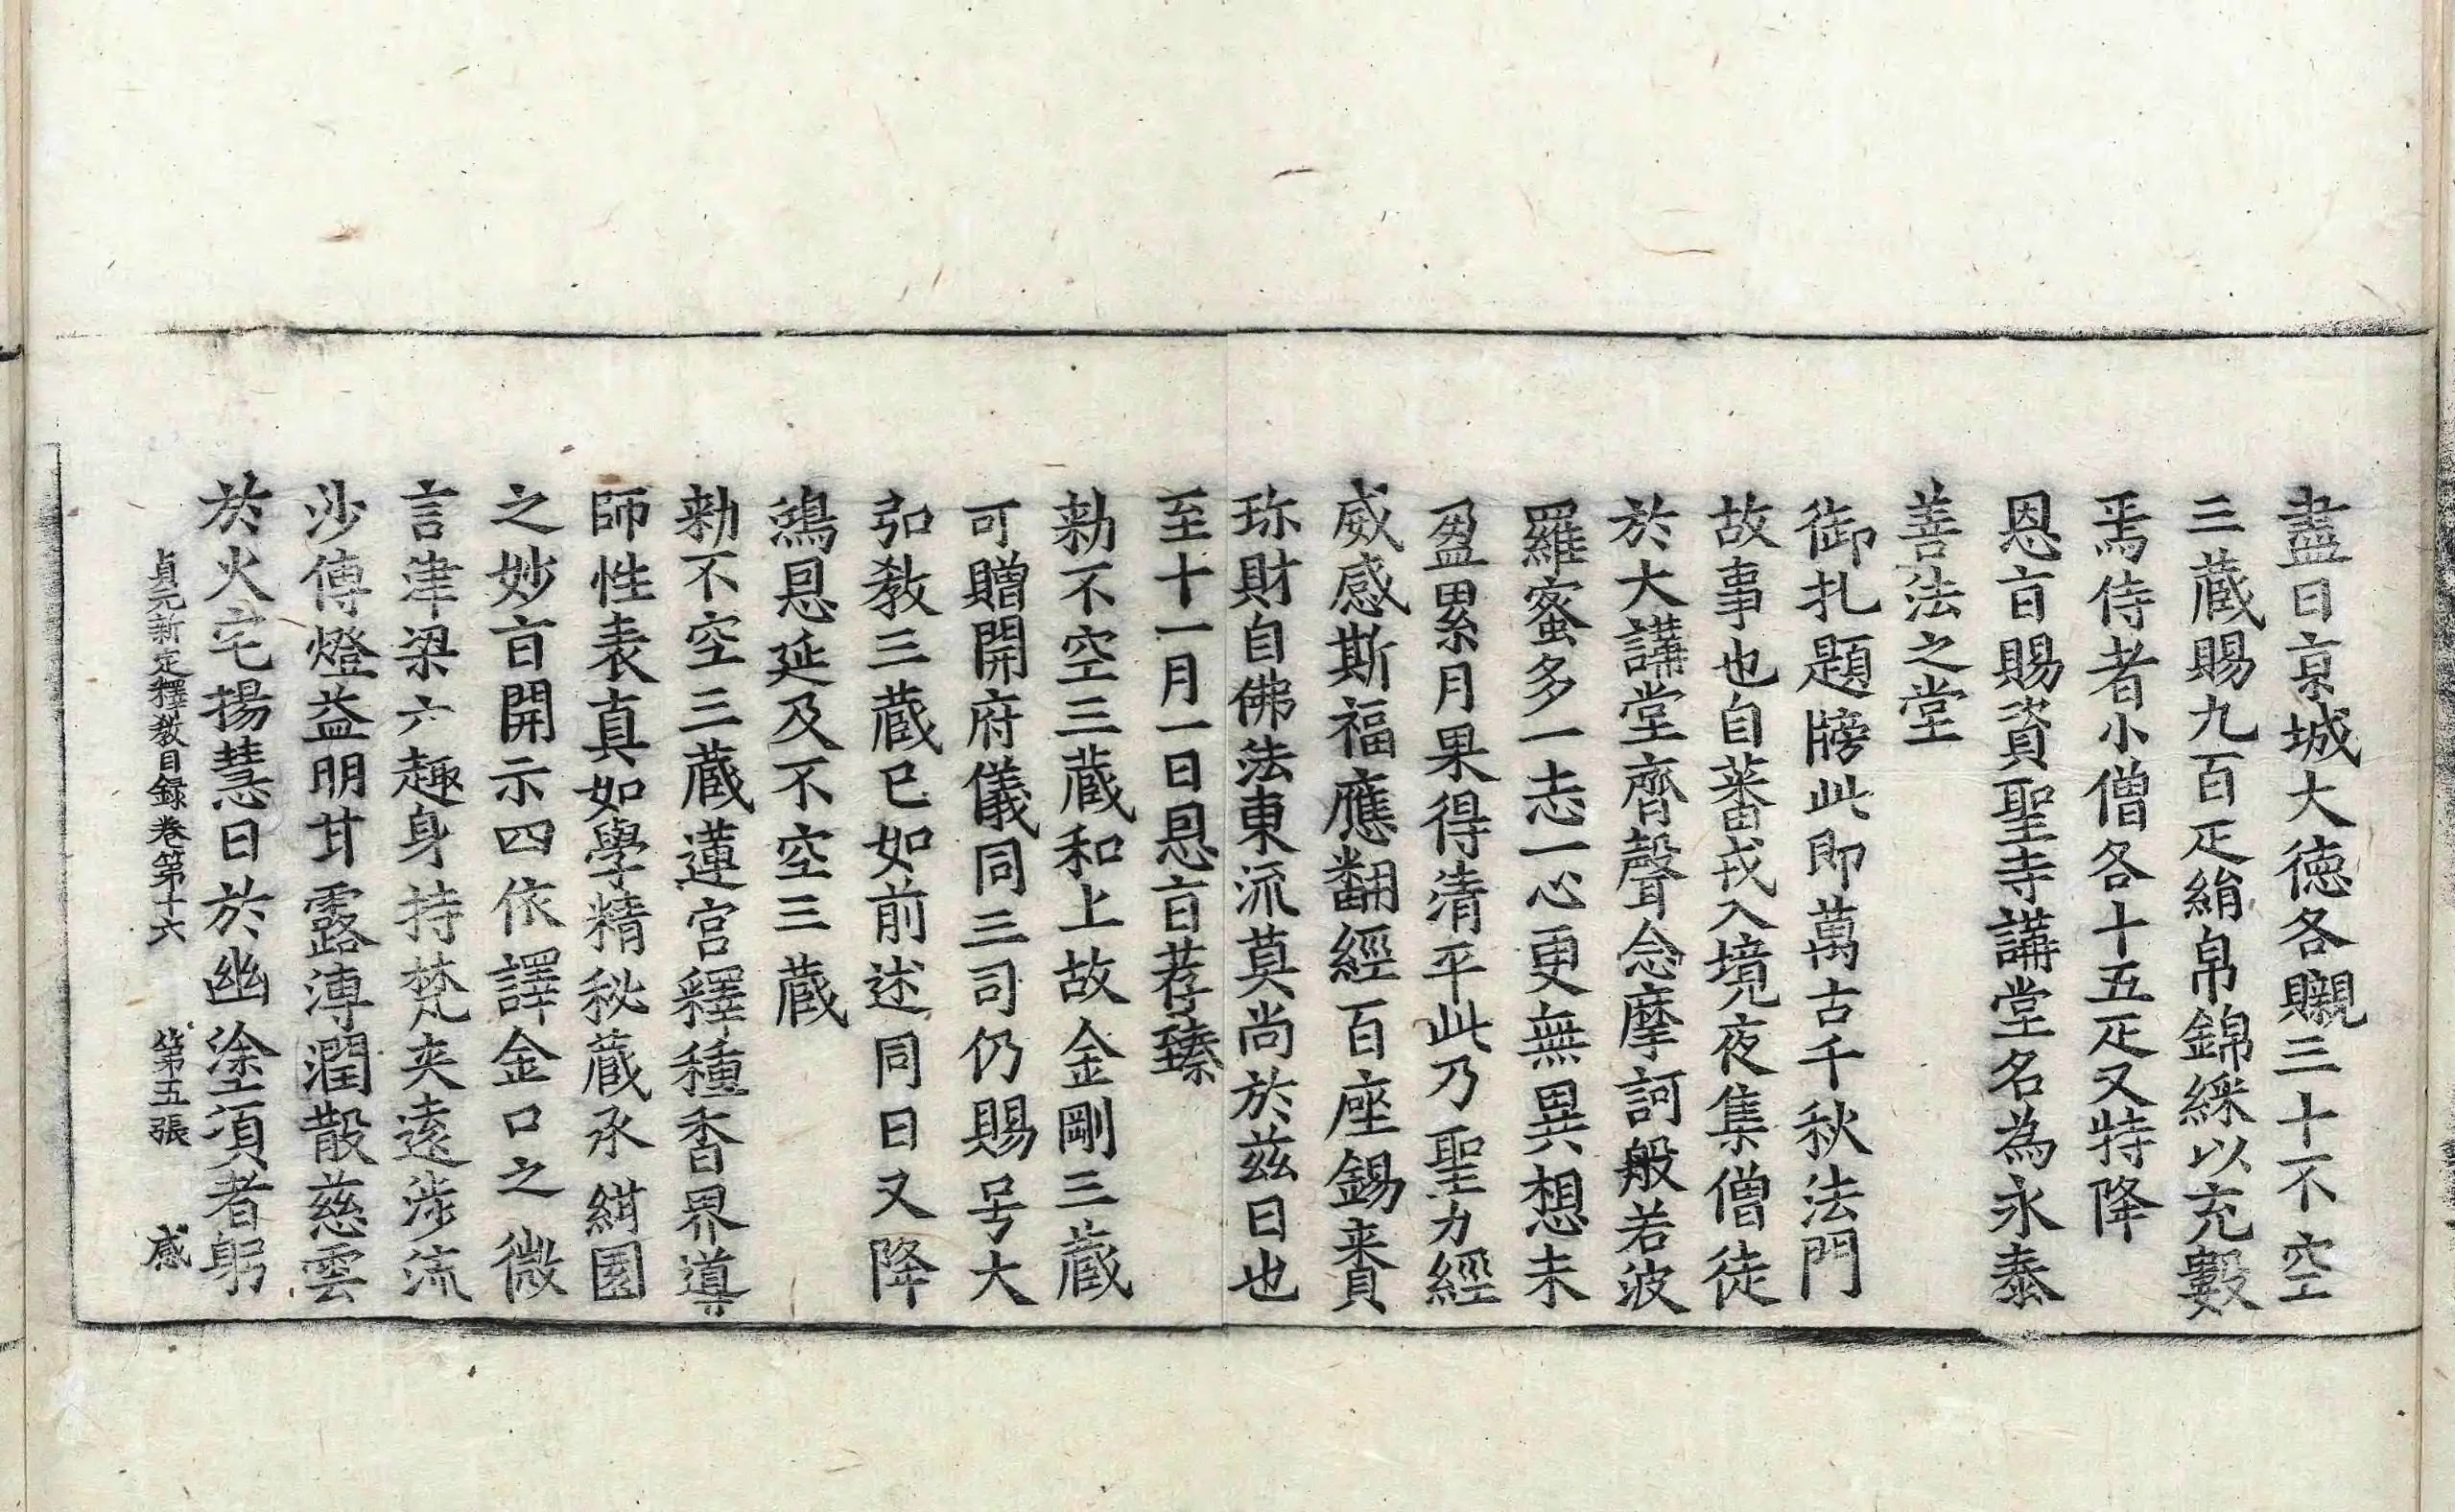 盡日京城大德各䞋三十不空
三藏賜九百疋絹帛錦綵以充數
焉侍者小僧各十五疋又特降
恩旨賜資聖寺講堂名為永泰
善法之堂
御札題牓此即萬古千秋法門
故事也自蕃戎入境夜集僧徒
於大講堂齊聲念摩訶般若波
羅蜜多一志一心更無異想未
盈累月果得清平此乃聖力經
威感斯福應翻經百座錫賚
珎財自佛法東流莫尚於茲日也
至十一月一日恩旨荐臻
勑不空三藏和上故金剛三藏
可贈開府儀同三司仍賜号大
弘教三藏已如前述同日又降
鴻恩延及不空三藏
勑不空三藏蓮宮釋種香界導
師性表真如學精秘藏承紺園
之妙旨開示四依譯金口之微
言津梁六趣身持梵夾遠涉流
沙傳燈益明甘露溥潤散慈雲
於火宅揚慧日於幽塗項者躬
貞元新定釋教目録卷第十六 第五張 感